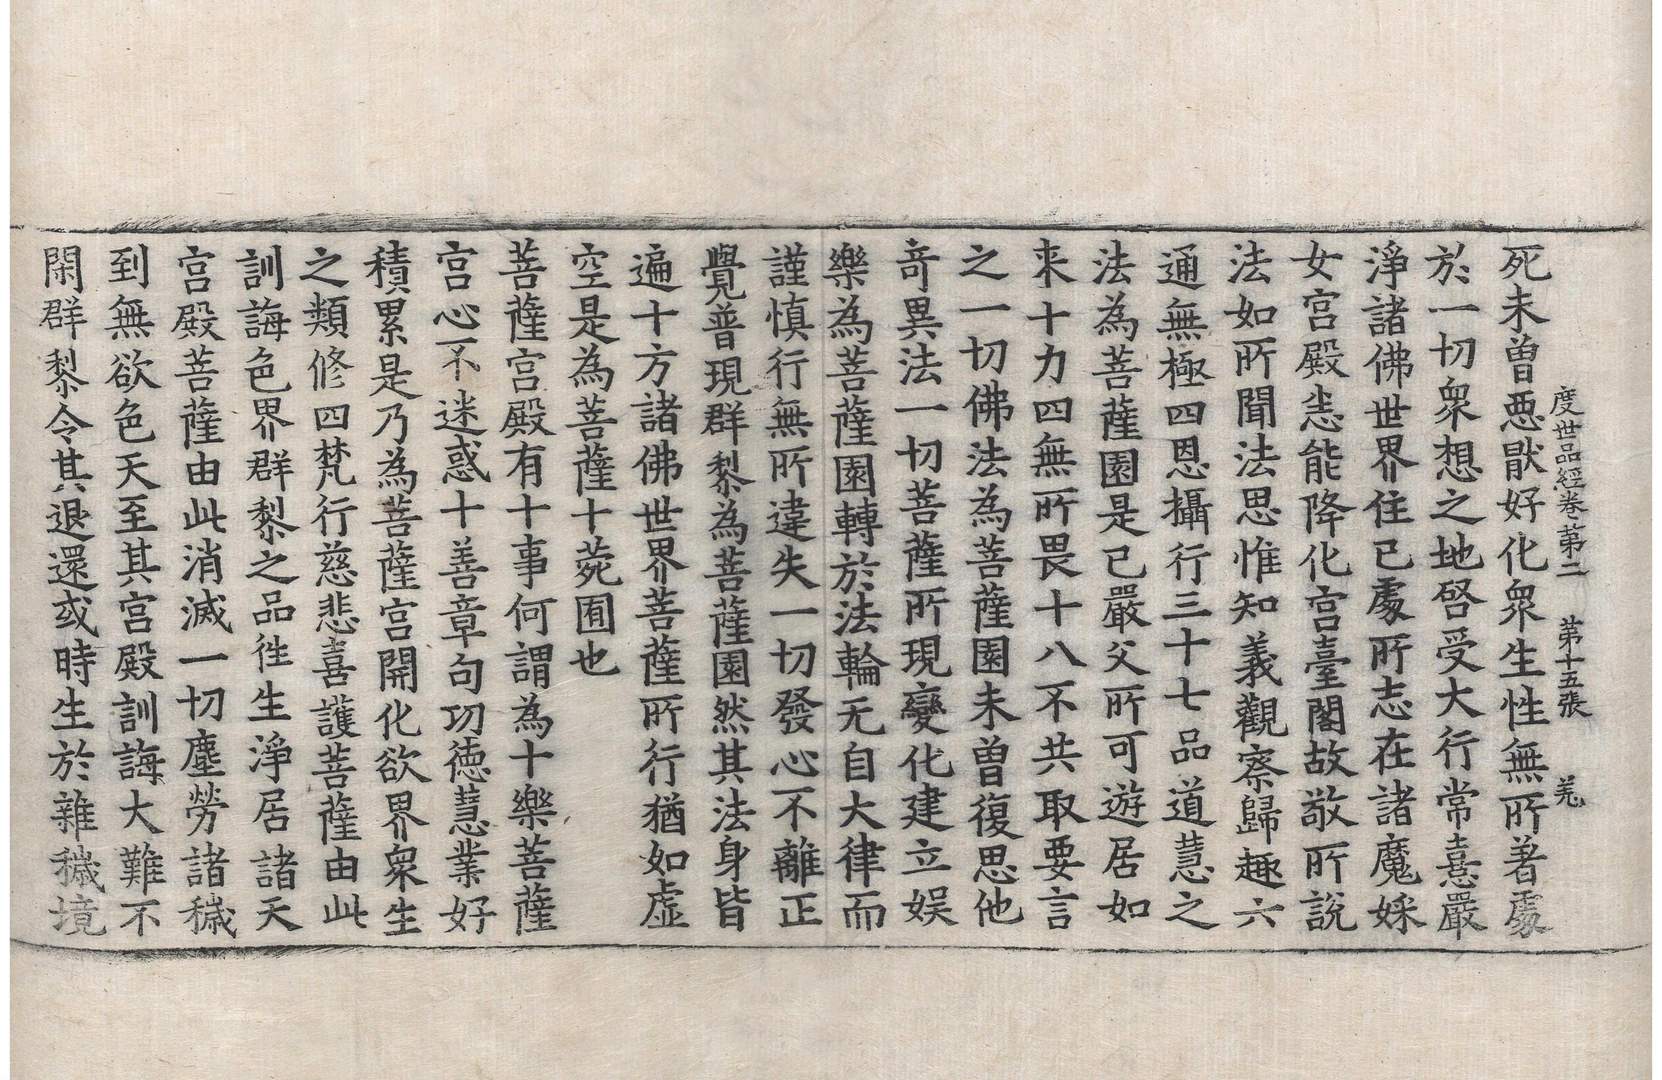 度世品經卷第二 第十五張 羌
死未曾惡猒好化衆生性無所著處
於一切衆想之地啓受大行常憙嚴
淨諸佛世界住已處所志在諸魔婇
女宮殿悉能降化宮臺閣故敬所說
法如所聞法思惟知義觀察歸趣六
通無極四恩攝行三十七品道慧之
法為菩薩園是已嚴父所可遊居如
来十力四無所畏十八不共取要言
之一切佛法為菩薩園未曾復思他
竒異法一切菩薩所現變化建立娱
樂為菩薩園轉於法輪无自大律而
謹慎行無所違失一切發心不離正
覺普現群黎為菩薩園然其法身皆
遍十方諸佛世界菩薩所行猶如虛
空是為菩薩十菀囿也
菩薩宮殿有十事何謂為十樂菩薩
宮心不迷惑十善章句功德慧業好
積累是乃為菩薩宮開化欲界衆生
之類修四梵行慈悲喜護菩薩由此
訓誨色界群黎之品徃生淨居諸天
宮殿菩薩由此消滅一切塵勞諸穢
到無欲色天至其宮殿訓誨大難不
閑群黎令其退還或時生於雜穢境